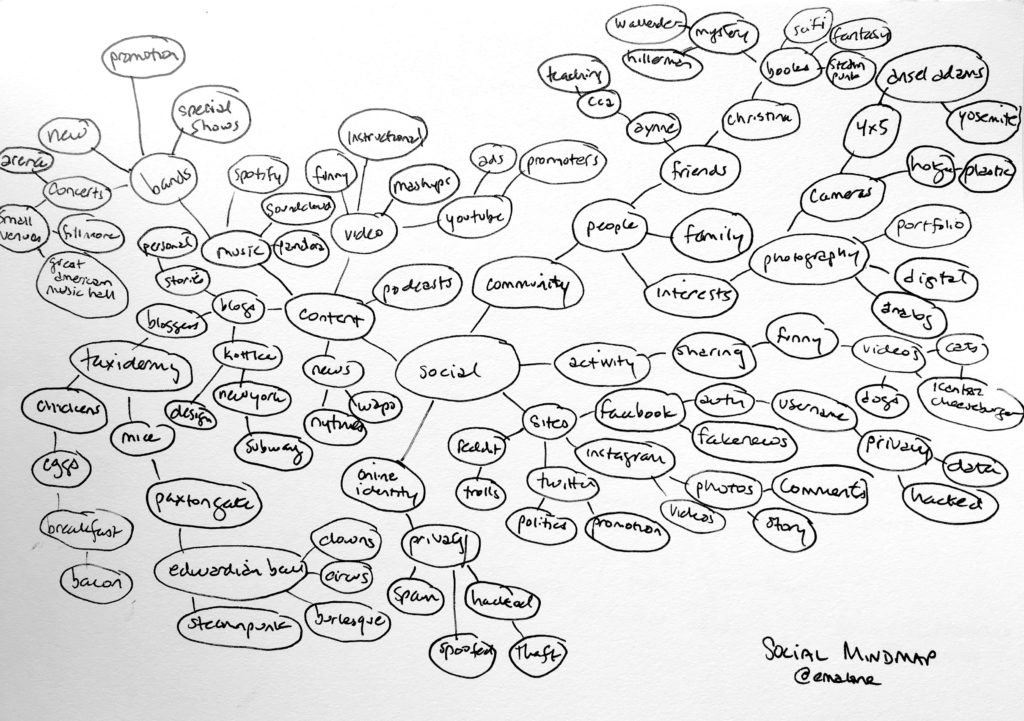 promotion
special
shows
new
arena
concerts
bands
small
venues
fillmore
great
american
music hall
spotify
soundcloud
pandora
music
personal
stories
funny
instructional
mashups
video
ads
promoters
youtube
podcasts
content
blogs
bloggers
taxidermy
kottke
design
newyork
subway
news
nytimes
wapo
chickens
eggs
breakfast
bacon
mice
paxtongate
edwardian ball
clowns
circus
burlesque
steampunk
social
community
people
friends
family
interests
aynne
cca
teaching
christina
books
mystery
wallender
hillerman
scifi
fantasy
steam
punk
photography
cameras
4x5
ansel adams
yosemite
holga
plastic
portfolio
digital
analog
activity
sharing
funny
videos
cats
icanhaz
cheeseburger
dogs
sites
facebook
auth
username
privacy
data
hacked
fakenews
instagram
photos
comments
story
videos
twitter
politics
promotion
Reddit
trolls
online
identity
privacy
spam
spoofed
hacked
theft
SOCIAL MINDMAP
@emalone